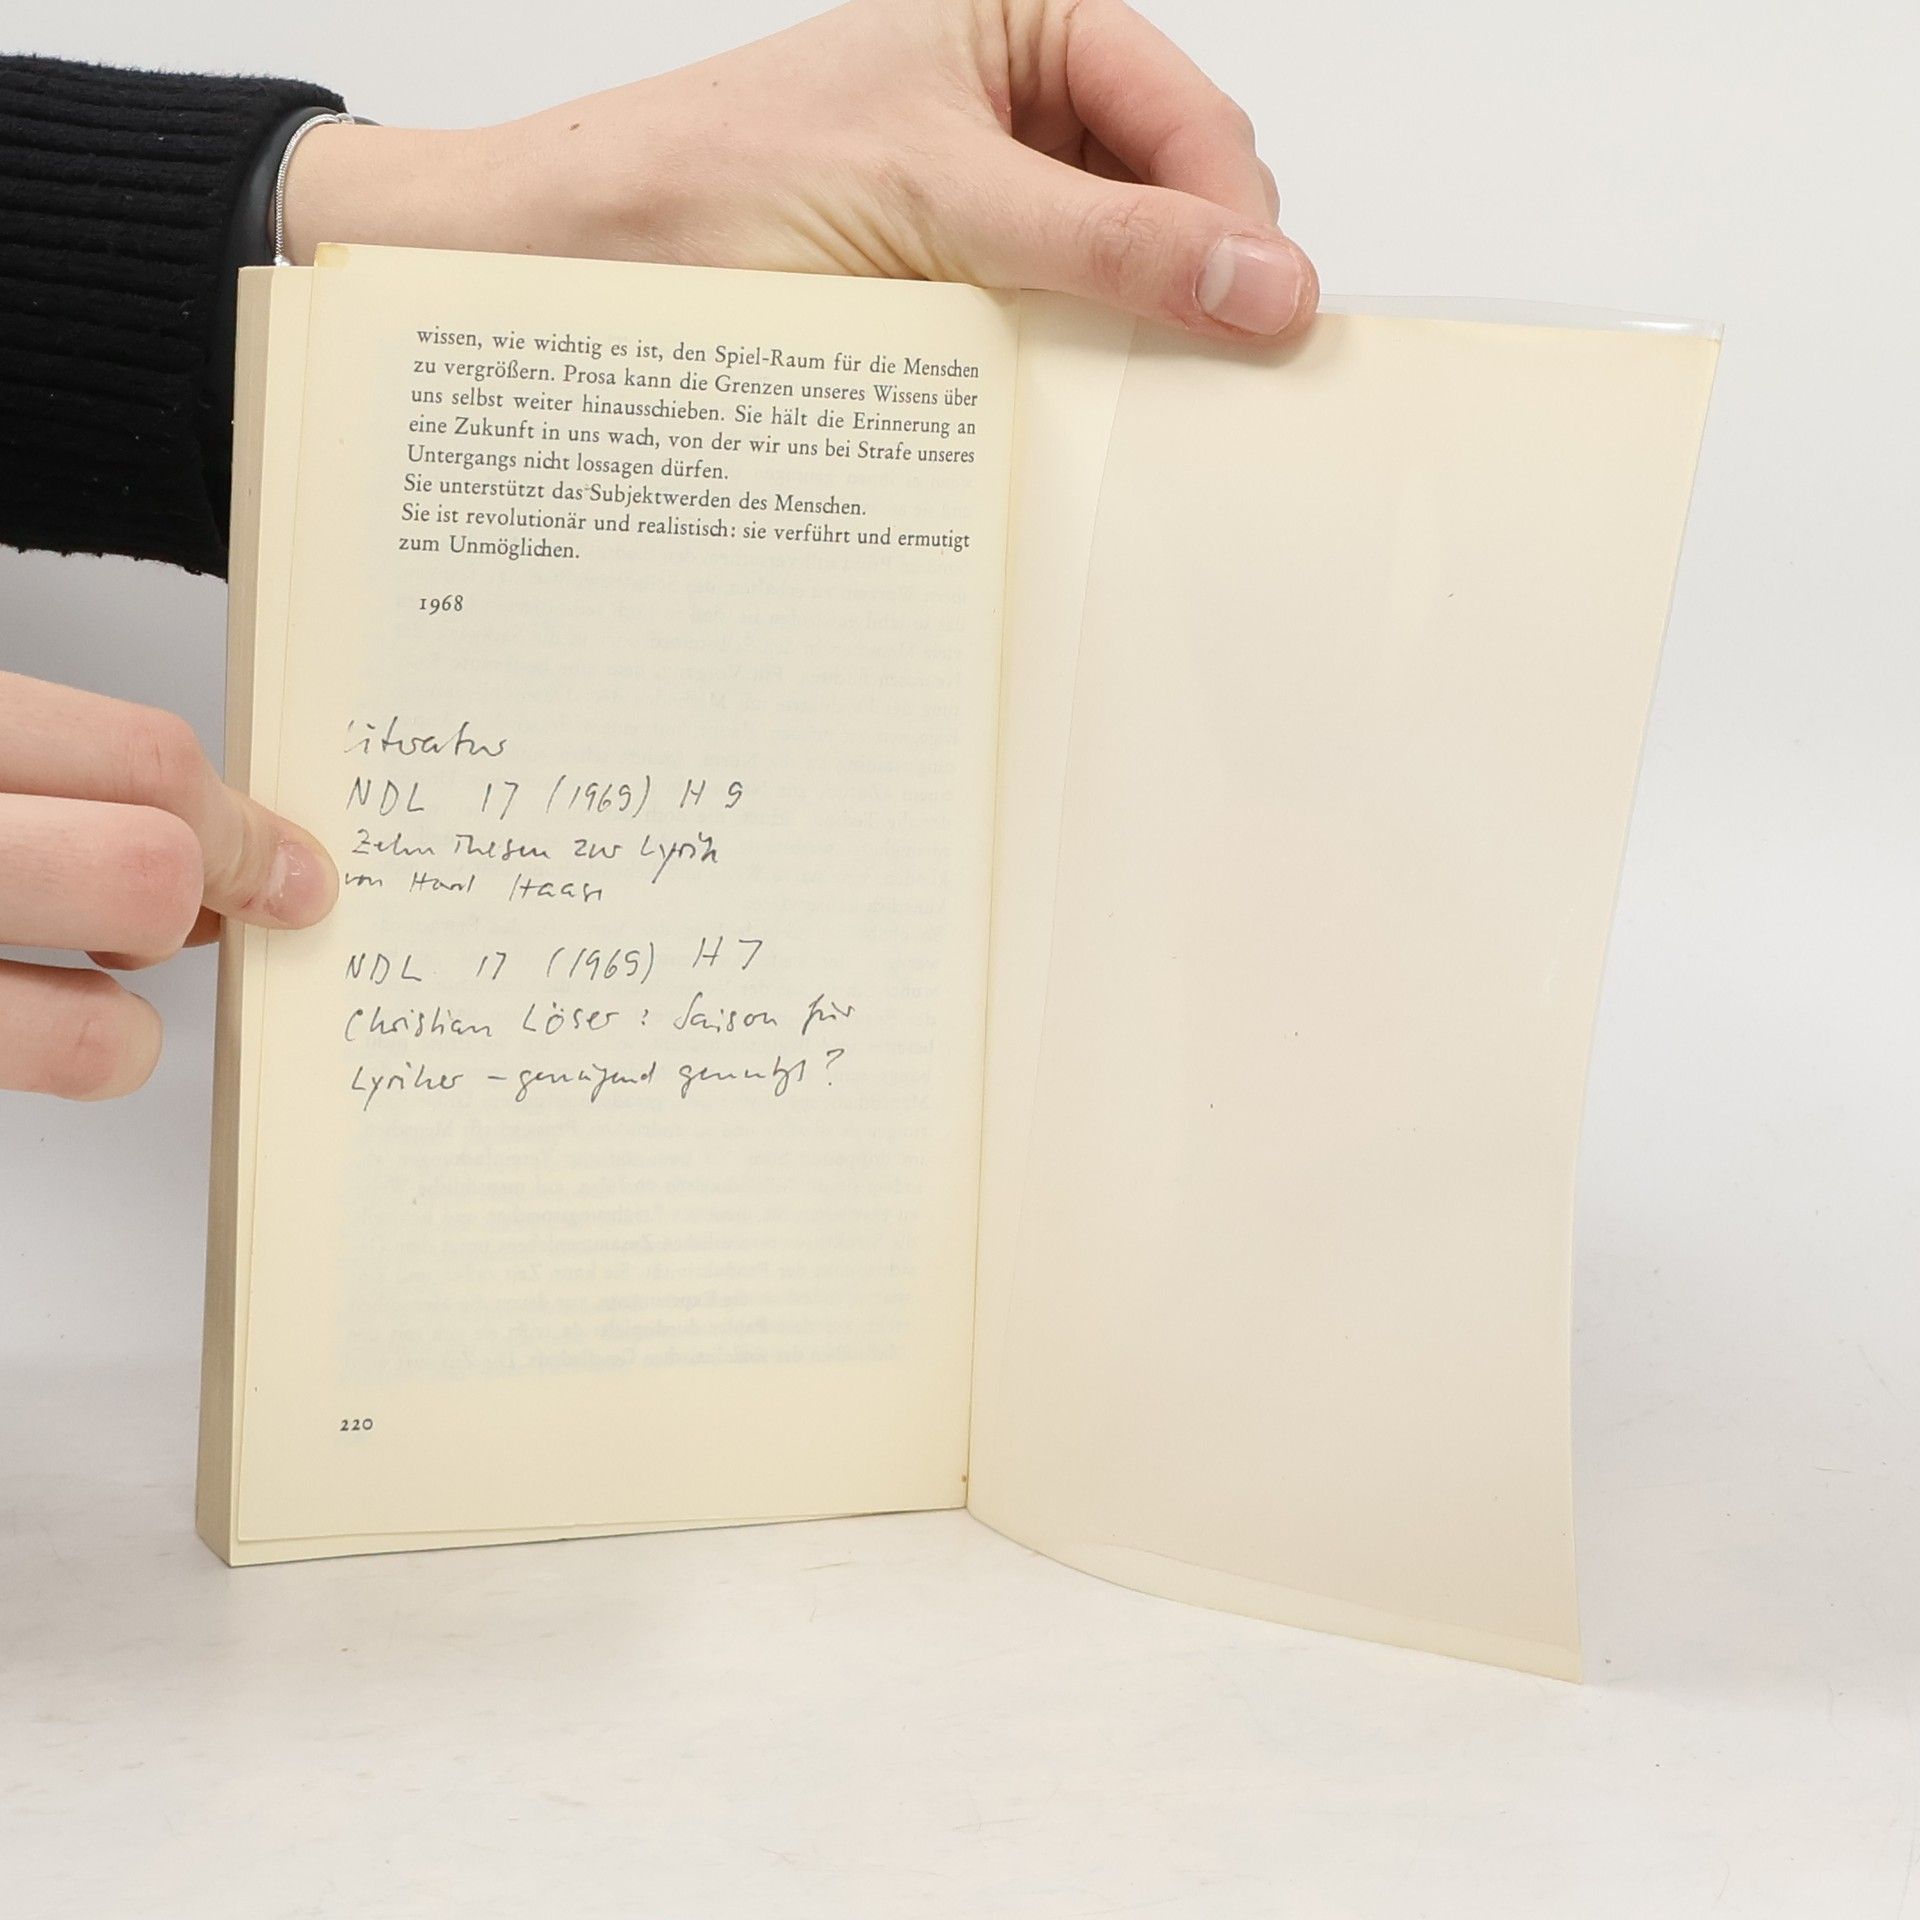 wissen, wie wichtig es ist, den Spiel-Raum für die Menschen
zu vergrößern. Prosa kann die Grenzen unseres Wissens über
uns selbst weiter hinausschieben. Sie hält die Erinnerung an
eine Zukunft in uns wach, von der wir uns bei Strafe unseres
Untergangs nicht lossagen dürfen.
Sie unterstützt das Subjektwerden des Menschen.
Sie ist revolutionär und realistisch: sie verführt und ermutigt
zum Unmöglichen.
1968
Literatur
NDL 17 (1969) H 9
Zehn Thesen zur Lyrik
von Horst Haase
NDL 17 (1969) H 7
Christian Löser: Saison für
Lyriker – genügend genutzt?
220